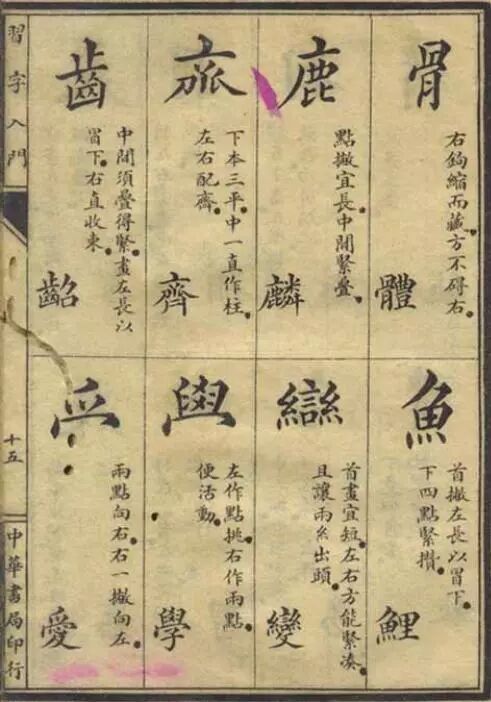 骨
右鈎縮而藏方不礙右
體
鹿
點撇宜長中間緊疊
麟
下本三平中一直作柱
左右配齊
齊
齒
中間須疊得緊畫左長以
冒下右直收束
齠
魚
首撇左長以冒下
下四點緊攢
鯉
首畫宜短左右方能緊凑
且讓兩糸出頭
變
左作點挑右作兩點
便活動
學
兩點向右右一撇向左
愛
習字入門
十五
中華書局印行